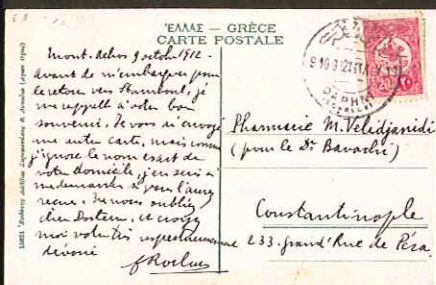 ΈΛΛΑΣ — GRÈCE
CARTE POSTALE
Mont-Athos 9 octobre 1912.
Avant de m'embarquer pour
le retour vers Stamboul, je
me rappelle à votre bon
souvenir. Je vous ai envoyé
une autre carte, mais comme
j'ignore le nom exact de
votre domicile, j'en suis à
me demander si vous l'aurez
recue. Ne nous oubliez
cher Docteur, et croyez
moi votre très respectueusement
dévoué
Pharmacie M. Velidjanidi
(pour le Dr Bavachi)
Constantinople
233. Grand' Rue de Péra.
DAPHNI
20